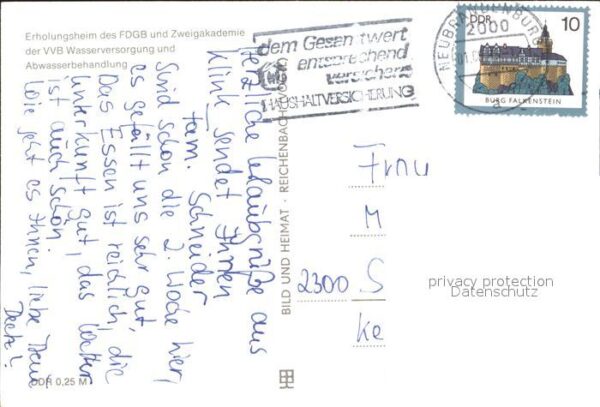 Erholungsheim des FDGB und Zweigakademie
der VVB Wasserversorgung und
Abwasserbehandlung
dem Gesamtwert
entsprechend
versichern
HAUSHALTVERSICHERUNG
NEUBRANDENBURG
2000
a
DDR
10
BURG FALKENSTEIN
Herzliche Urlaubsgrüße aus
Klink sendet Ihnen
Fam. Schneider
Sind schon die 2. Woche hier,
es gefällt uns sehr gut,
Das Essen ist reichlich, die
Unterkunft gut, das Wetter
ist auch schön.
Wie geht es Ihnen, liebe Frau
BILD UND HEIMAT · REICHENBACH
Frau
M
2300 S
Ke
privacy protection
Datenschutz
DDR 0,25 M